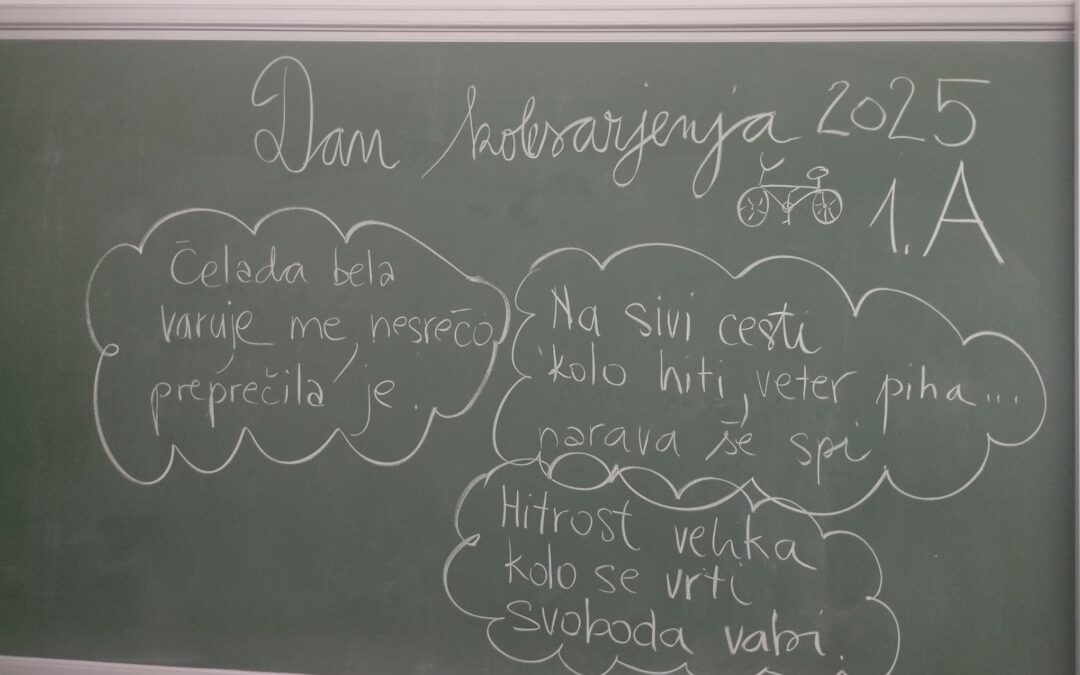 Dan kolesarjenja 2025
1. A
Čelada bela
varuje me, nesrečo
preprečila je.
Na sivi cesti
kolo hiti, veter piha...
narava še spi.
Hitrost velika
kolo se vrti
svoboda vabi.